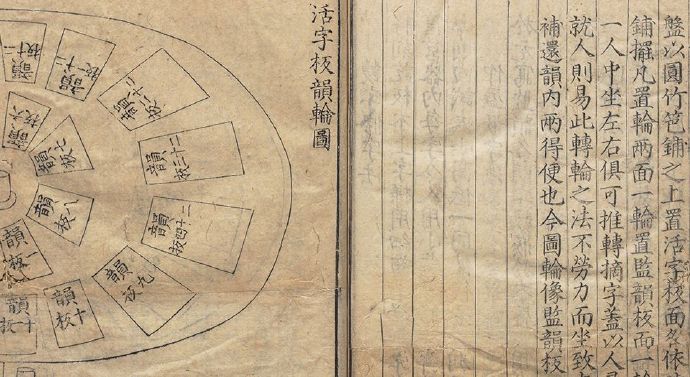 盤以圓竹笆鋪之上置活字板面各依
鋪擺凡置輪兩面一輪置監韻板面一
一人中坐左右俱可推轉摘字蓋以人
就人則易此轉輪之法不勞力而坐致
補還韻內兩得便也今圖輪像監韻板
活字板韻輪圖
韻板
韻板
韻板
韻板六
韻板七
韻板二十二
韻板八
韻板二十四
韻板一
韻板九
韻板十
韻板十